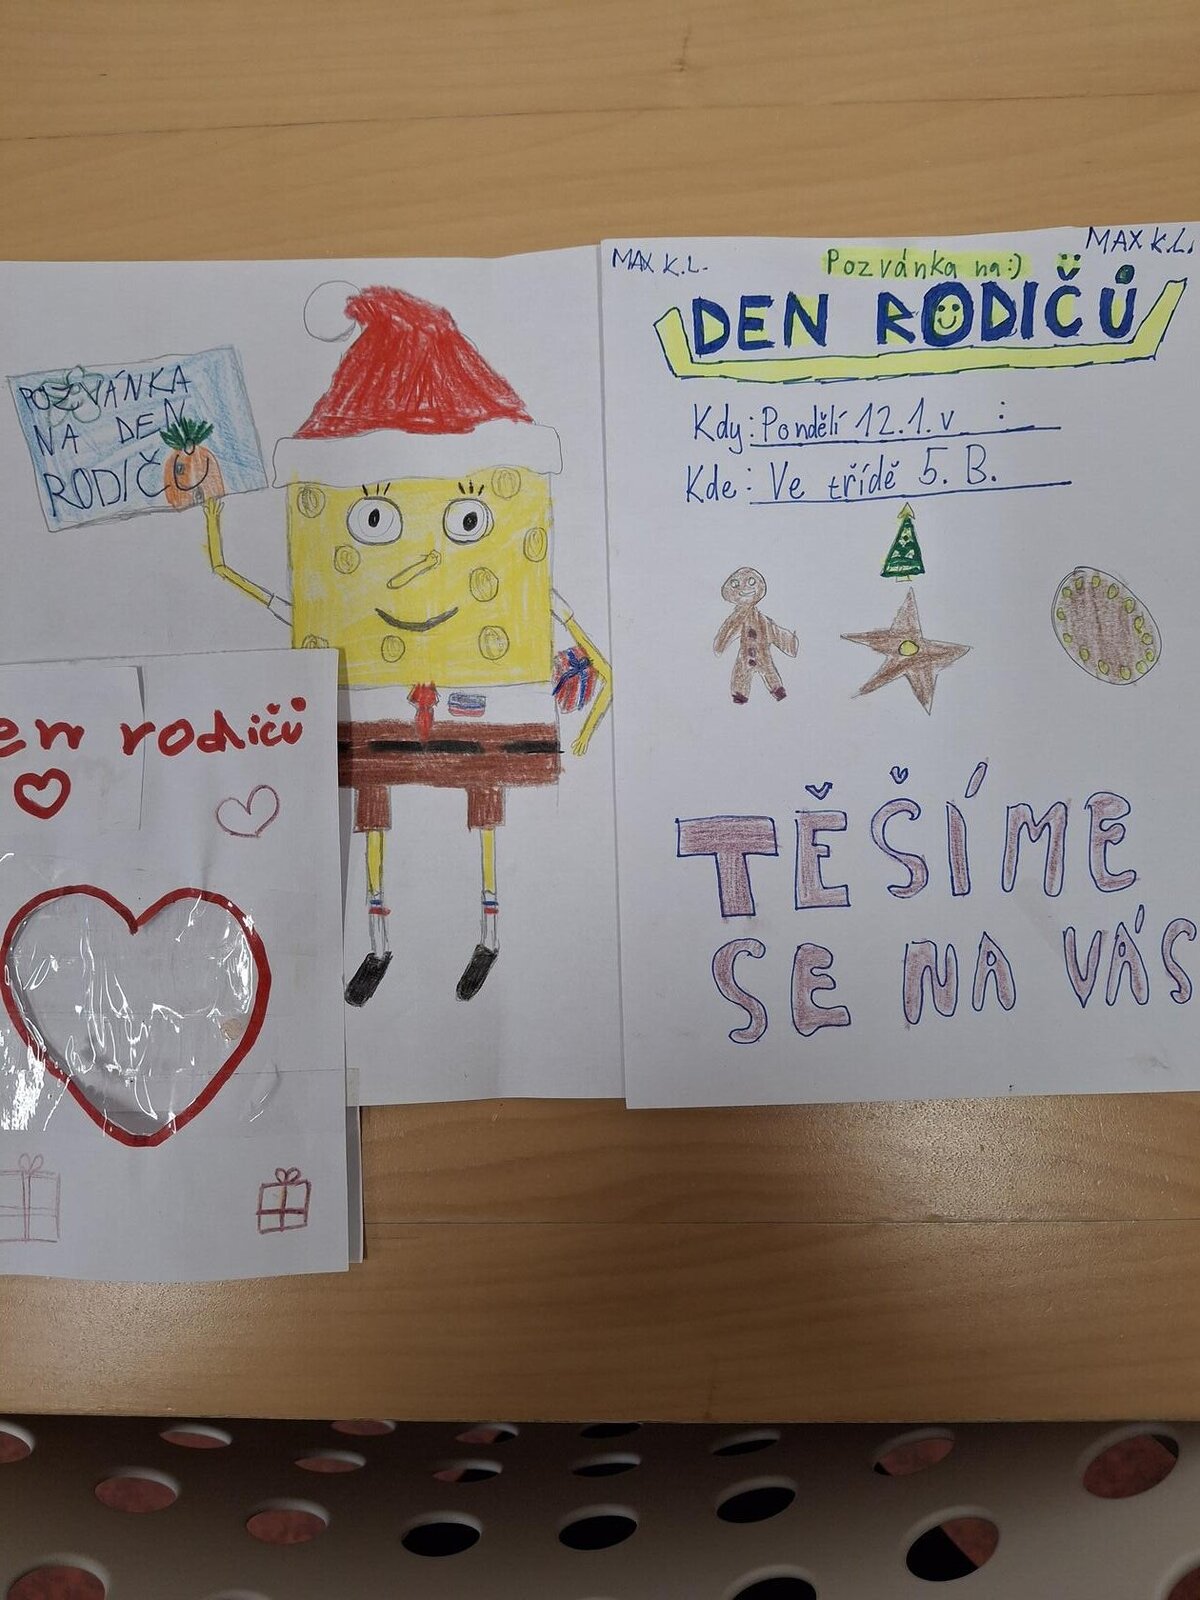 POZVÁNKA
NA DEN
RODIČŮ
en rodičů
MAX K.L.
MAX K.L.
Pozvánka na:)
DEN RODIČŮ
Kdy: Pondělí 12.1. v :
Kde: Ve třídě 5. B.
TĚŠÍME
SE NA VÁS